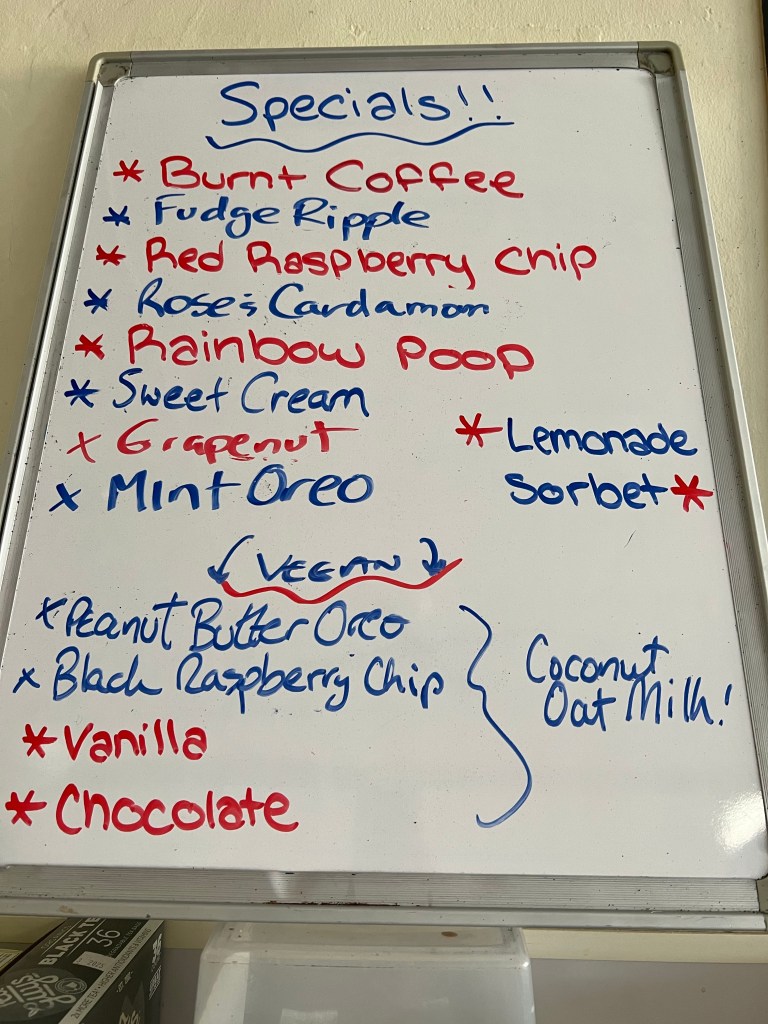 Specials!!
* Burnt Coffee
* Fudge Ripple
* Red Raspberry Chip
* Rose's Cardamon
* Rainbow Poop
* Sweet Cream
x Grapenut
x Mint Oreo
* Lemonade
Sorbet *
VEGAN
x Peanut Butter Oreo
x Black Raspberry Chip
* Vanilla
* Chocolate
Coconut
Oat Milk!
BLACK TE
36